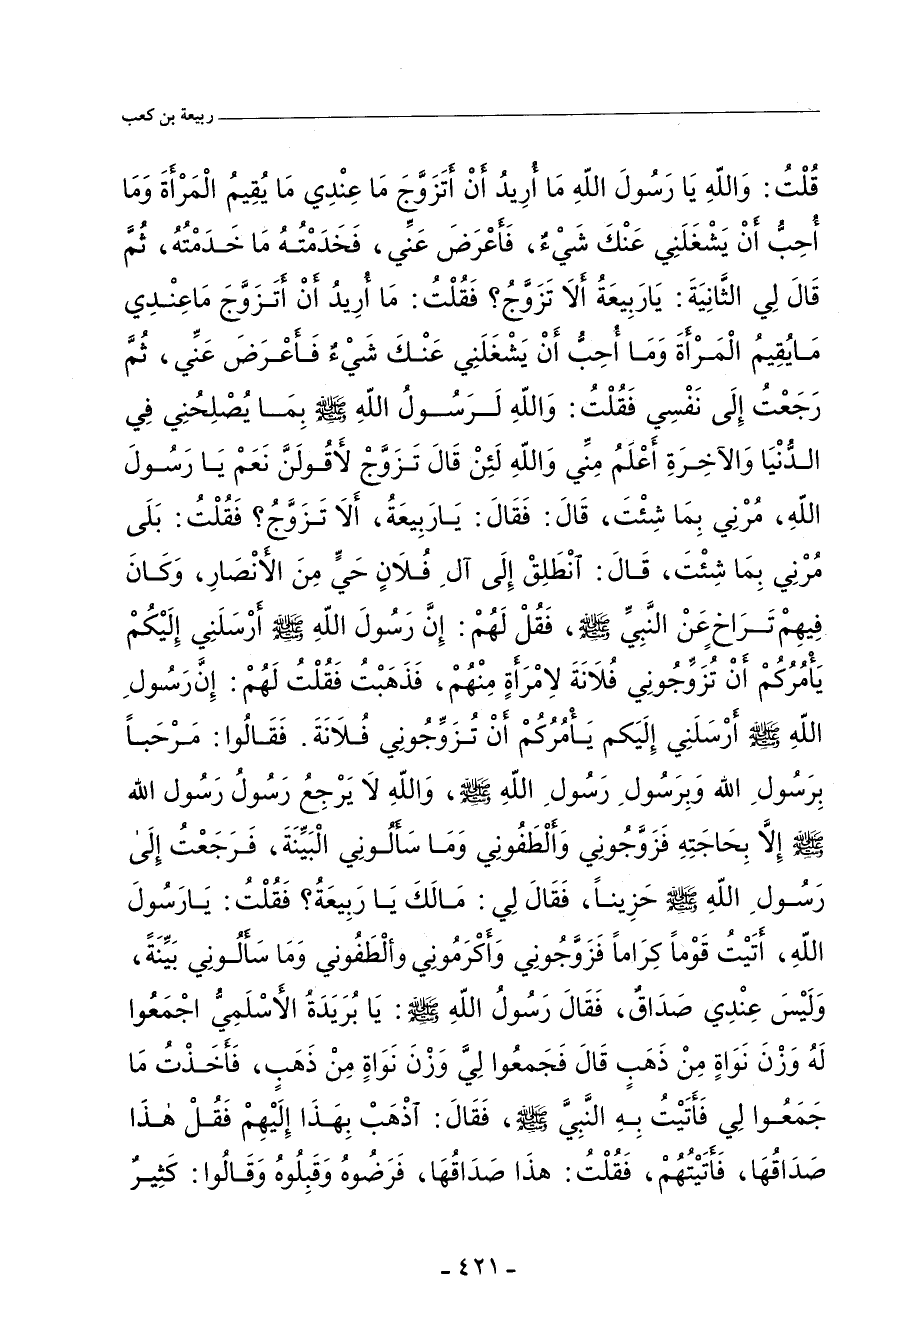 ربيعة بن كعب
قُلْتُ: وَاللّهِ يَا رَسُولَ اللّهِ مَا أُرِيدُ أَنْ أَتَزَوَّجَ مَا عِنْدِي مَا يُقِيمُ الْمَرْأَةَ وَمَا
أُحِبُّ أَنْ يَشْغَلَنِي عَنْكَ شَيْءٌ، فَأَعْرَضَ عَنِّي، فَخَدَمْتُهُ مَا خَدَمْتُهُ، ثُمَّ
قَالَ لِي الثَّانِيَةَ: يَارَبِيعَةُ أَلَا تَزَوَّجُ؟ فَقُلْتُ: مَا أُرِيدُ أَنْ أَتَزَوَّجَ مَاعِنْدِي
مَايُقِيمُ الْمَرْأَةَ وَمَا أُحِبُّ أَنْ يَشْغَلَنِي عَنْكَ شَيْءٌ فَأَعْرَضَ عَنِّي، ثُمَّ
رَجَعْتُ إِلَى نَفْسِي فَقُلْتُ: وَاللّهِ لَرَسُولُ اللّهِ ﷺ بِمَا يُصْلِحُنِي فِي
الدُّنْيَا وَالآخِرَةِ أَعْلَمُ مِنِّي وَاللّهِ لَئِنْ قَالَ تَزَوَّجْ لأَقُولَنَّ نَعَمْ يَا رَسُولَ
اللّهِ، مُرْنِي بِمَا شِئْتَ، قَالَ: فَقَالَ: يَارَبِيعَةُ، أَلَا تَزَوَّجُ؟ فَقُلْتُ: بَلَى
مُرْنِي بِمَا شِئْتَ، قَالَ: آنْطَلِقْ إِلَى آلِ فُلَانٍ حَيٍّ مِنَ الأَنْصَارِ، وَكَانَ
فِيهِمْ تَرَاخٍ عَنْ النَّبِيِّ ﷺ، فَقُلْ لَهُمْ: إِنَّ رَسُولَ اللّهِ ﷺ أَرْسَلَنِي إِلَيْكُمْ
يَأْمُرُكُمْ أَنْ تُزَوِّجُونِي فُلَانَةَ لِامْرَأَةٍ مِنْهُمْ، فَذَهَبْتُ فَقُلْتُ لَهُمْ: إِنَّ رَسُولَ
اللّهِ ﷺ أَرْسَلَنِي إِلَيكم يَأْمُرُكُمْ أَنْ تُزَوِّجُونِي فُلَانَةَ. فَقَالُوا: مَرْحَباً
بِرَسُولِ الله وَبِرَسُولِ رَسُولِ اللّهِ ﷺ، وَاللّهِ لَا يَرْجِعُ رَسُولُ رَسُولِ الله
ﷺ إِلَّا بِحَاجَتِهِ فَزَوَّجُونِي وَأَلْطَفُونِي وَمَا سَأَلُونِي الْبَيِّنَةَ، فَرَجَعْتُ إِلَىٰ
رَسُولِ اللّهِ ﷺ حَزِيناً، فَقَالَ لِي: مَالَكَ يَا رَبِيعَةُ؟ فَقُلْتُ: يَارَسُولَ
اللّهِ، أَتَيْتُ قَوْماً كِرَاماً فَزَوَّجُونِي وَأَكْرَمُونِي وألْطَفُونِي وَمَا سَأَلُونِي بَيِّنَةً،
وَلَيْسَ عِنْدِي صَدَاقٌ، فَقَالَ رَسُولُ اللّهِ ﷺ: يَا بُرَيَدَةُ الأَسْلَمِيُّ اجْمَعُوا
لَهُ وَزْنَ نَوَاةٍ مِنْ ذَهَبٍ قَالَ فَجَمعُوا لِيَّ وَزْنَ نَوَاةٍ مِنْ ذَهَبٍ، فَأَخَذْتُ مَا
جَمَعُوا لِي فَأَتَيْتُ بِهِ النَّبِيَّ ﷺ، فَقَالَ: آذْهَبْ بِهَذَا إِلَيْهِمْ فَقُلْ هٰذَا
صَدَاقُهَا، فَأَتَيْتُهُمْ، فَقُلْتُ: هذَا صَدَاقُهَا، فَرَضُوهُ وَقَبِلُوهُ وَقَالُوا: كَثِيرٌ
- ٤٢١ -